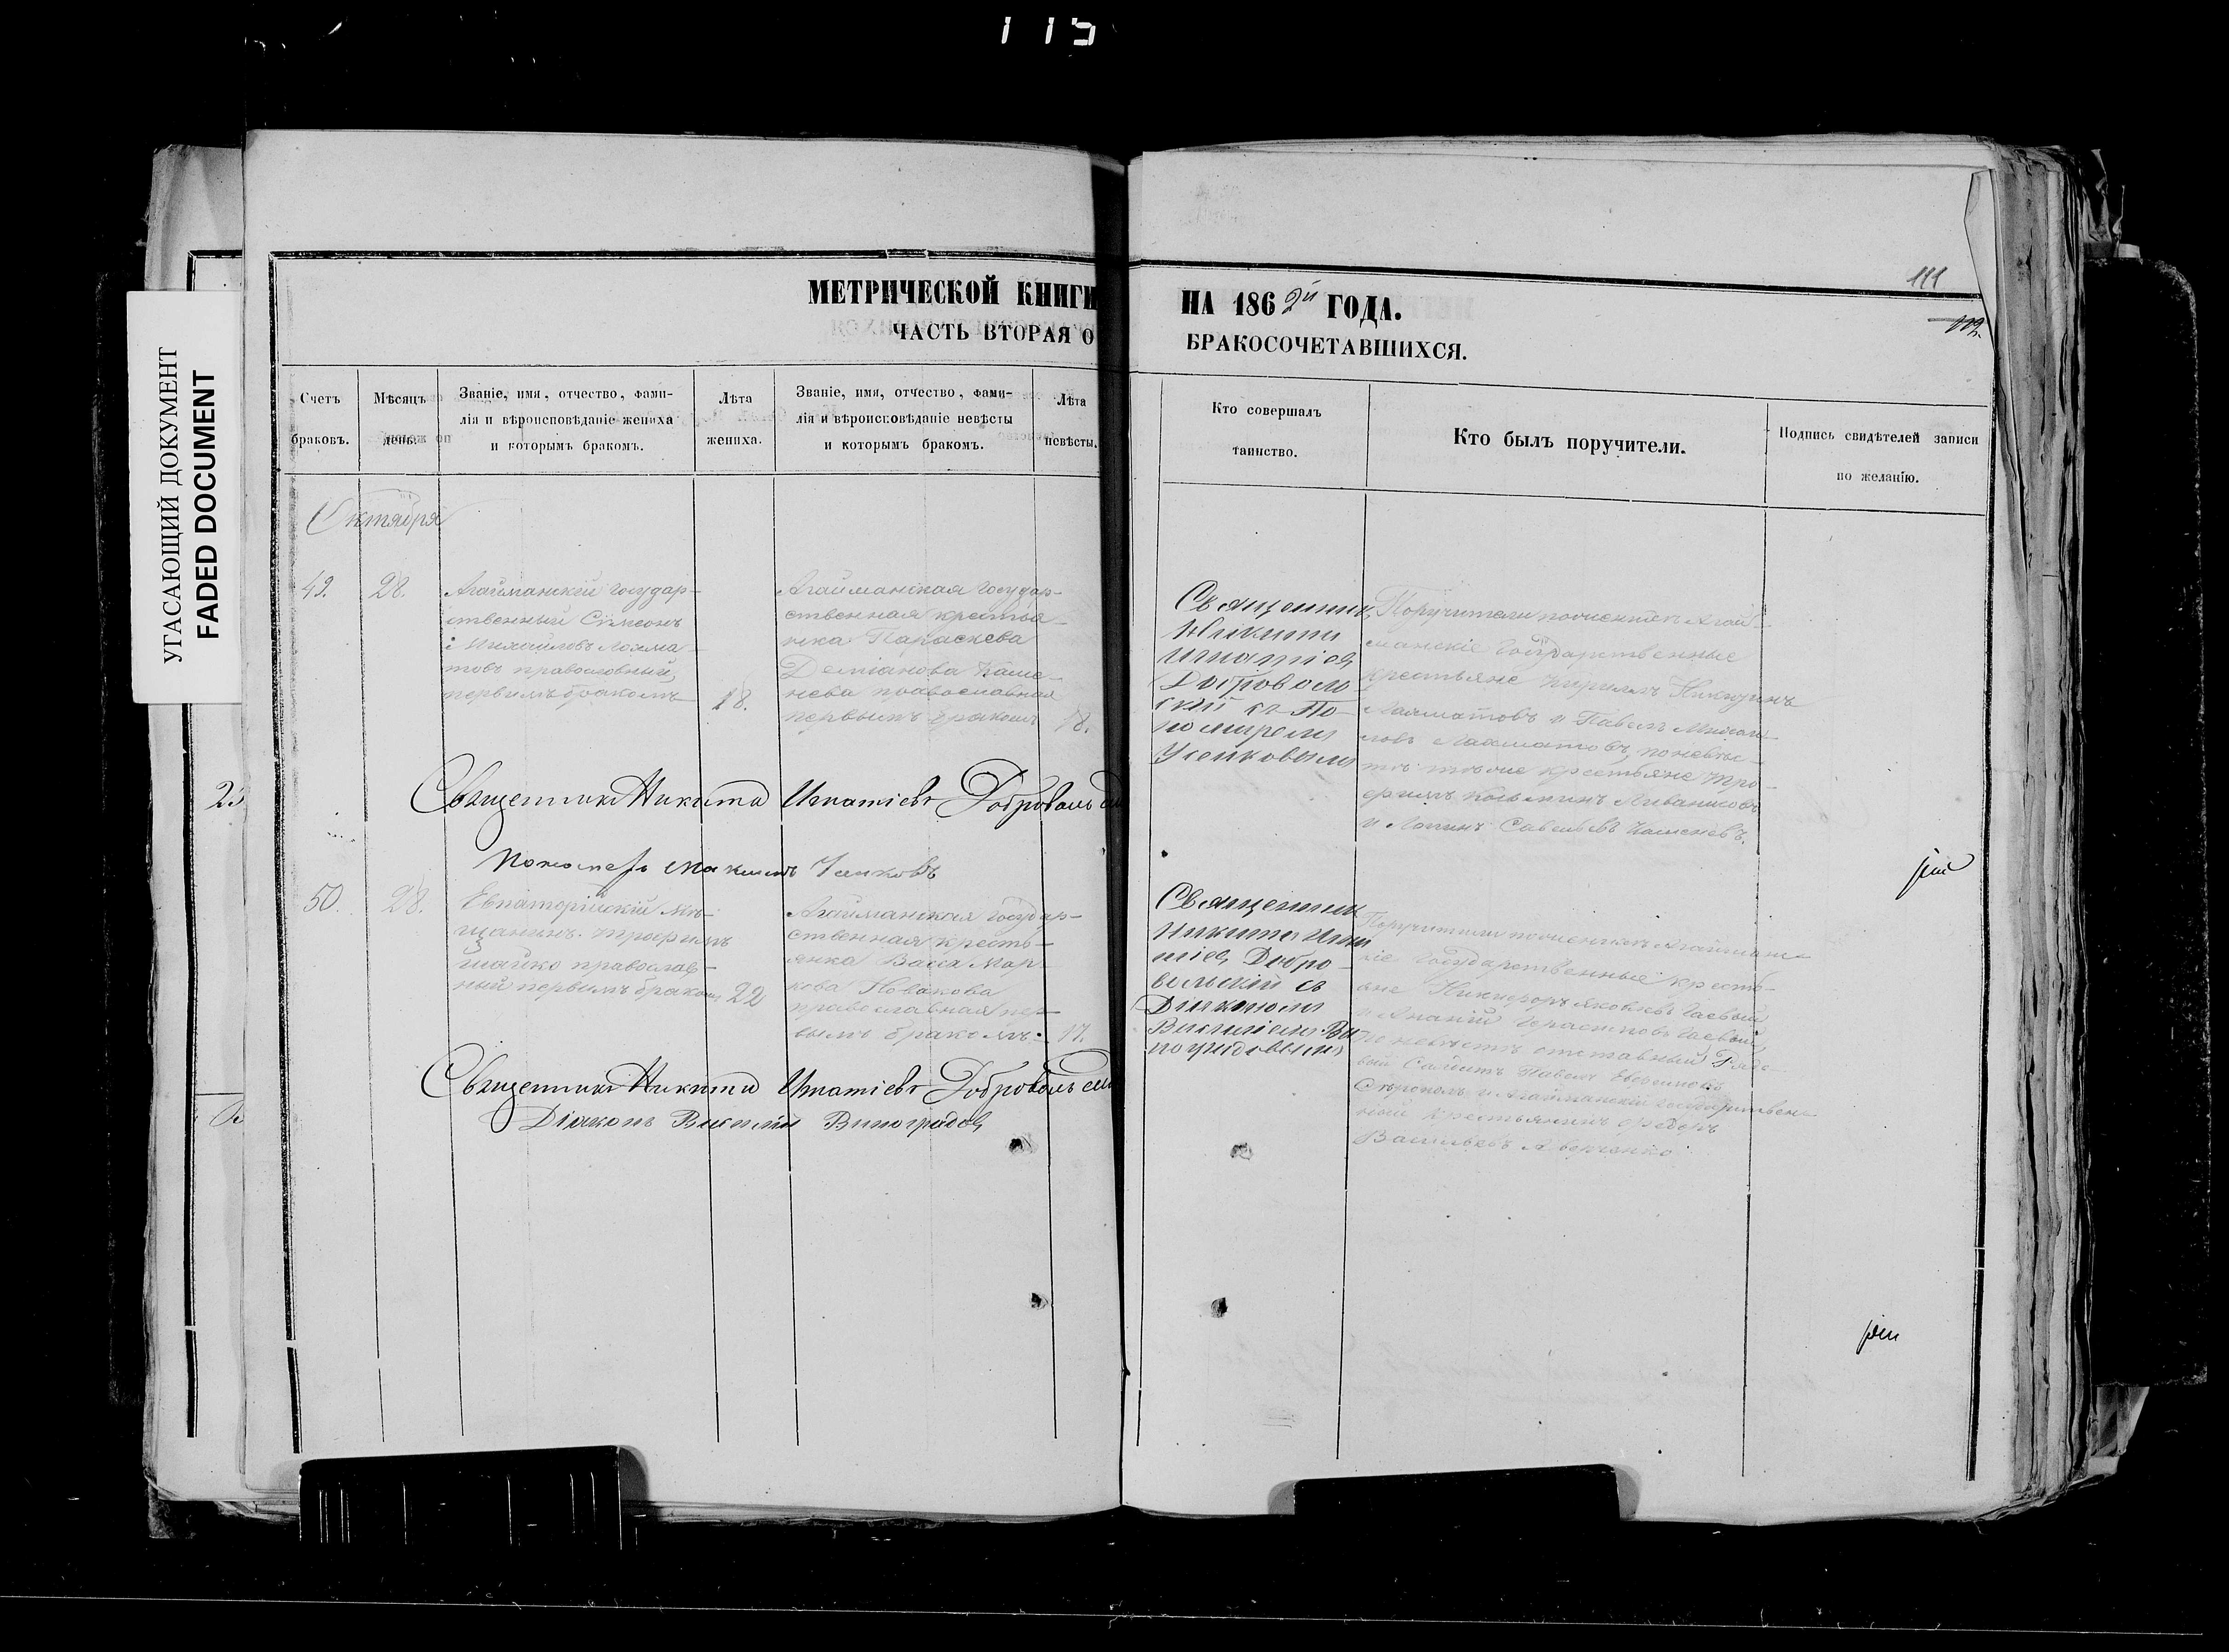 115
УГАСАЮЩИЙ ДОКУМЕНТ
FADED DOCUMENT
МЕТРИЧЕСКОЙ КНИГИ НА 1862й ГОДА.
ЧАСТЬ ВТОРАЯ О БРАКОСОЧЕТАВШИХСЯ.
111
Счетъ браковъ.
Мѣсяцъ день.
Званіе, имя, отчество, фами-
лія и вѣроисповѣданіе жениха
и которымъ бракомъ.
Лѣта жениха.
Званіе, имя, отчество, фами-
лія и вѣроисповѣданіе невѣсты
и которымъ бракомъ.
Лѣта невѣсты.
Кто совершалъ
таинство.
Кто былъ поручители.
Подпись свидѣтелей записи
по желанію.
Октября
49.
28.
Агайманскій государ-
ственный Сѵмеонъ
Михайловъ Лохма-
товъ православный,
первымъ бракомъ
18.
Агайманская государ-
ственная крестья-
нка Параскева
Деміанова Каше-
нева православная
первымъ бракомъ
18.
Священник
Никита
Игнатіев
Доброволь-
ский съ По-
номарем
Усенковымъ
Поручители по женихѣ Агай-
манскіе государственные
крестьяне Кириллъ
Лахматовъ и Павелъ Михаи-
ловъ Лахматовъ, по невѣс-
тѣ тѣ же крестьяне Тро-
фимъ
и Савельевъ Кашеневъ.
Священникъ Никита Игнатіевъ Добровольский
Пономарь Максимъ Усенковъ
50.
28.
Евпаторійскій мѣ-
щанинъ Трофимъ
православ-
ный первымъ бракомъ
22
Агайманская государ-
ственная кресть-
янка Васса Мар-
кова Новакова
православная пер-
вымъ бракомъ.
17.
Священник
Никита Игна
тіев Добро-
вольский съ
Діаконом
Виноградовымъ
Поручители по женихѣ Агайманс-
кіе государственные кресть-
яне Никифоръ Яковлевъ Гаевый
и Ананій Герасимовъ Гаевый,
по невѣстѣ отставный Рядо-
вый Солдатъ Павелъ
и Агайманскій государствен-
ный крестьянинъ Федоръ
Васильевъ Аверченко
Священникъ Никита Игнатіевъ Добровольский
Діаконъ Виноградов
23